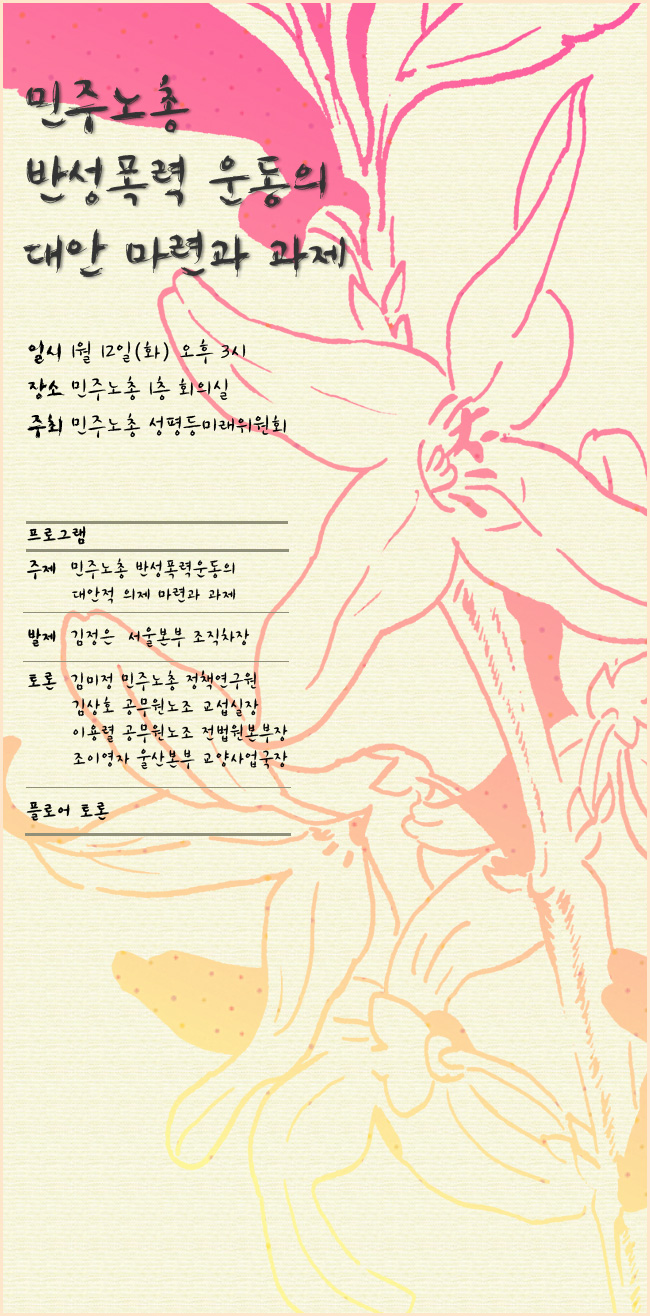 민주노총
반성폭력 운동의
대안 마련과 과제
일시 1월 12일(화) 오후 3시
장소 민주노총 1층 회의실
주최 민주노총 성평등미래위원회
프로그램
주제 민주노총 반성폭력운동의
대안적 의제 마련과 과제
발제 김정은 서울본부 조직차장
토론 김미정 민주노총 정책연구원
김상호 공무원노조 교섭실장
이용렬 공무원노조 전법원본부장
조이영자 울산본부 교양사업국장
플로어 토론